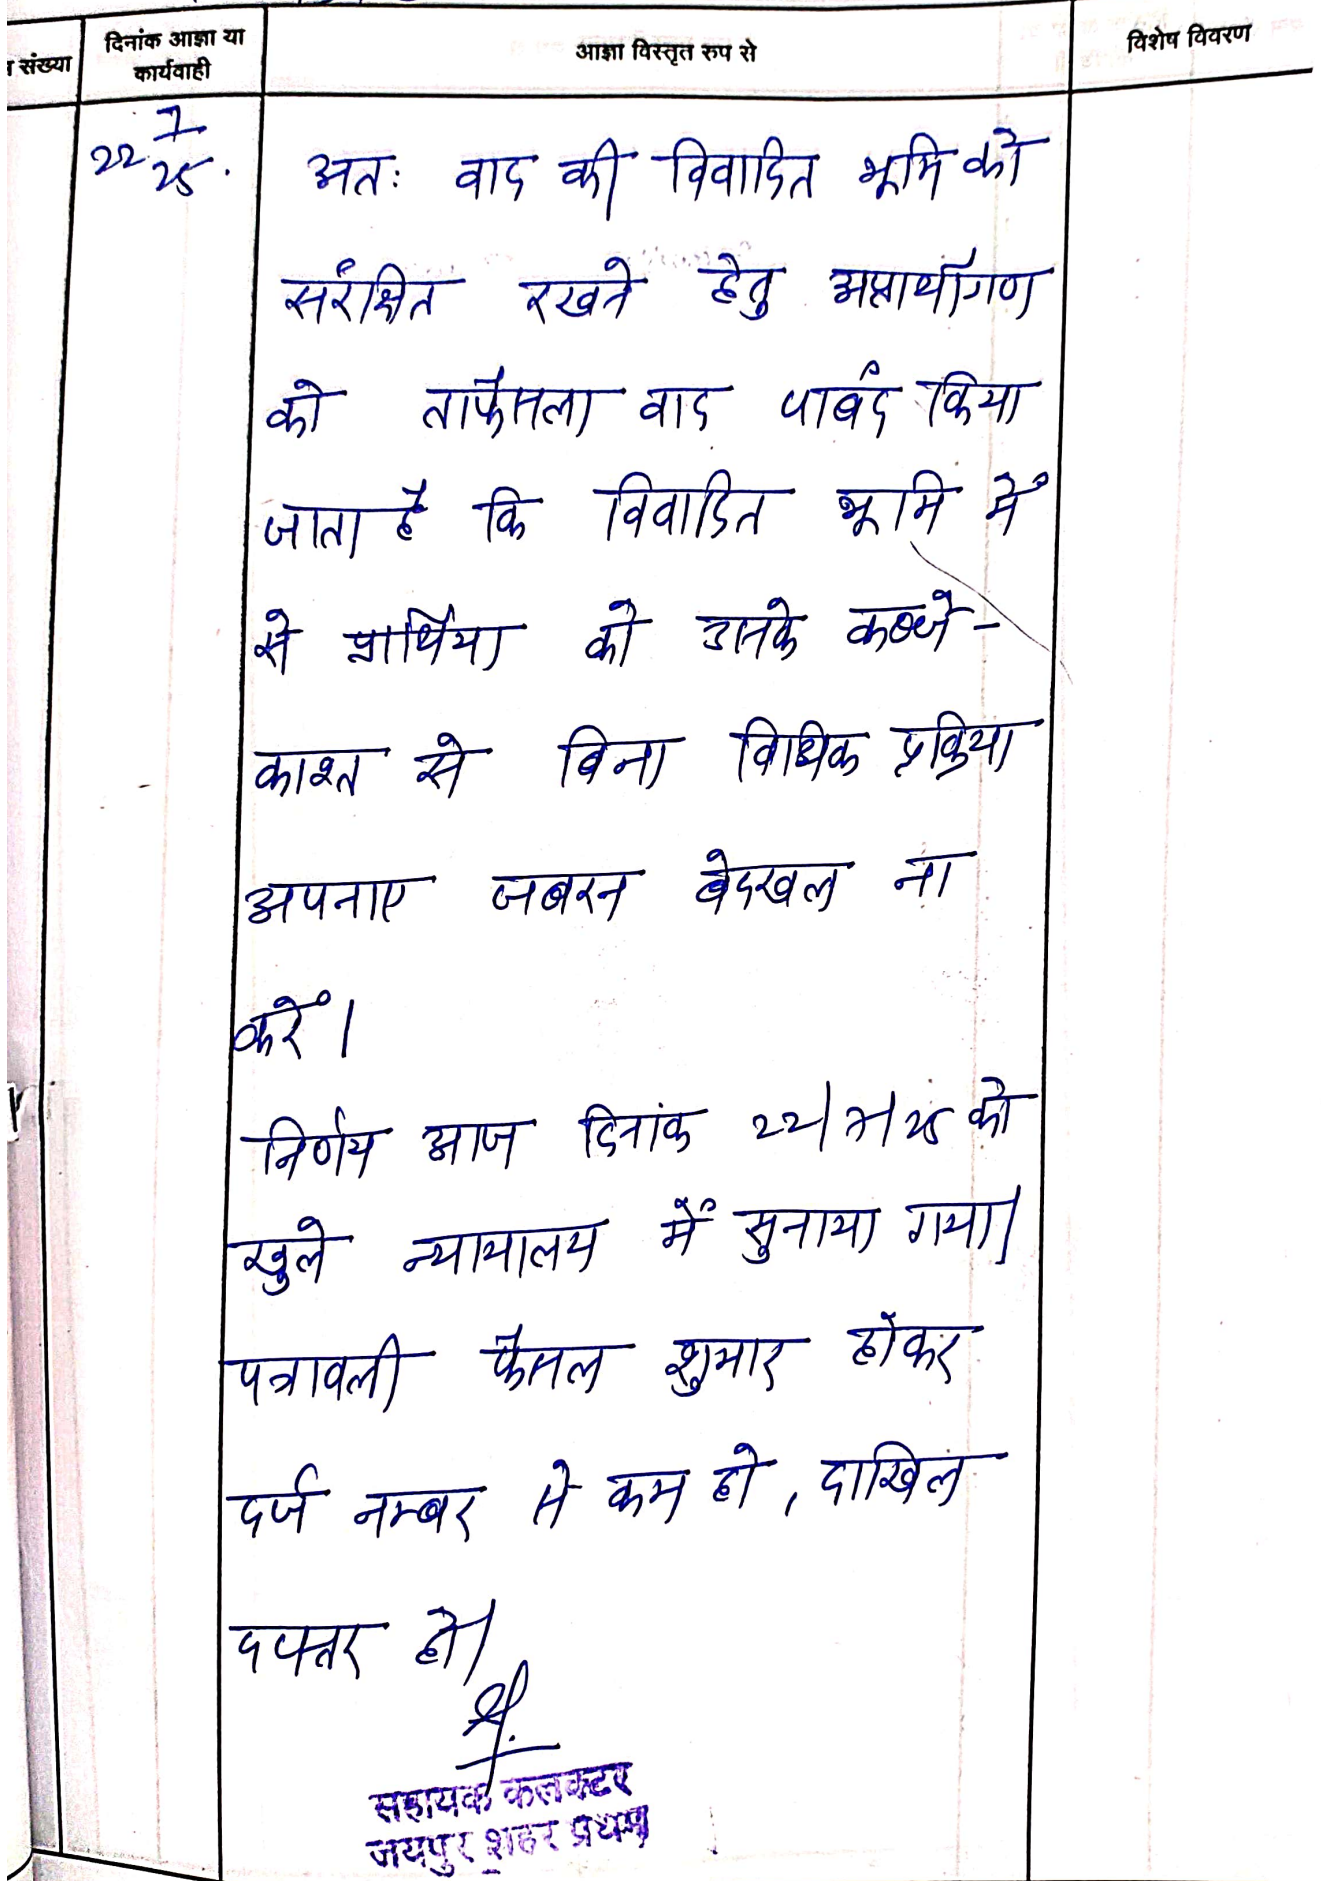 संख्या
दिनांक आज्ञा या
कार्यवाही
आज्ञा विस्तृत रुप से
विशेष विवरण
22 7/25.
अतः वाद की विवादित भूमि को
संरक्षित रखने हेतु अप्रार्थीगण
को ताफैसला वाद पाबंद किया
जाता है कि विवादित भूमि में
से प्रार्थिया को उसके कब्जे -
काश्त से बिना विधिक प्रक्रिया
अपनाए जबरन बेदखल ना
करें।
निर्णय आज दिनांक 22/7/25 को
खुले न्यायालय में सुनाया गया।
पत्रावली फैसल शुमार होकर
दर्ज नम्बर से कम हो, दाखिल
दफ्तर हो।
सहायक कलक्टर
जयपुर शहर प्रथम